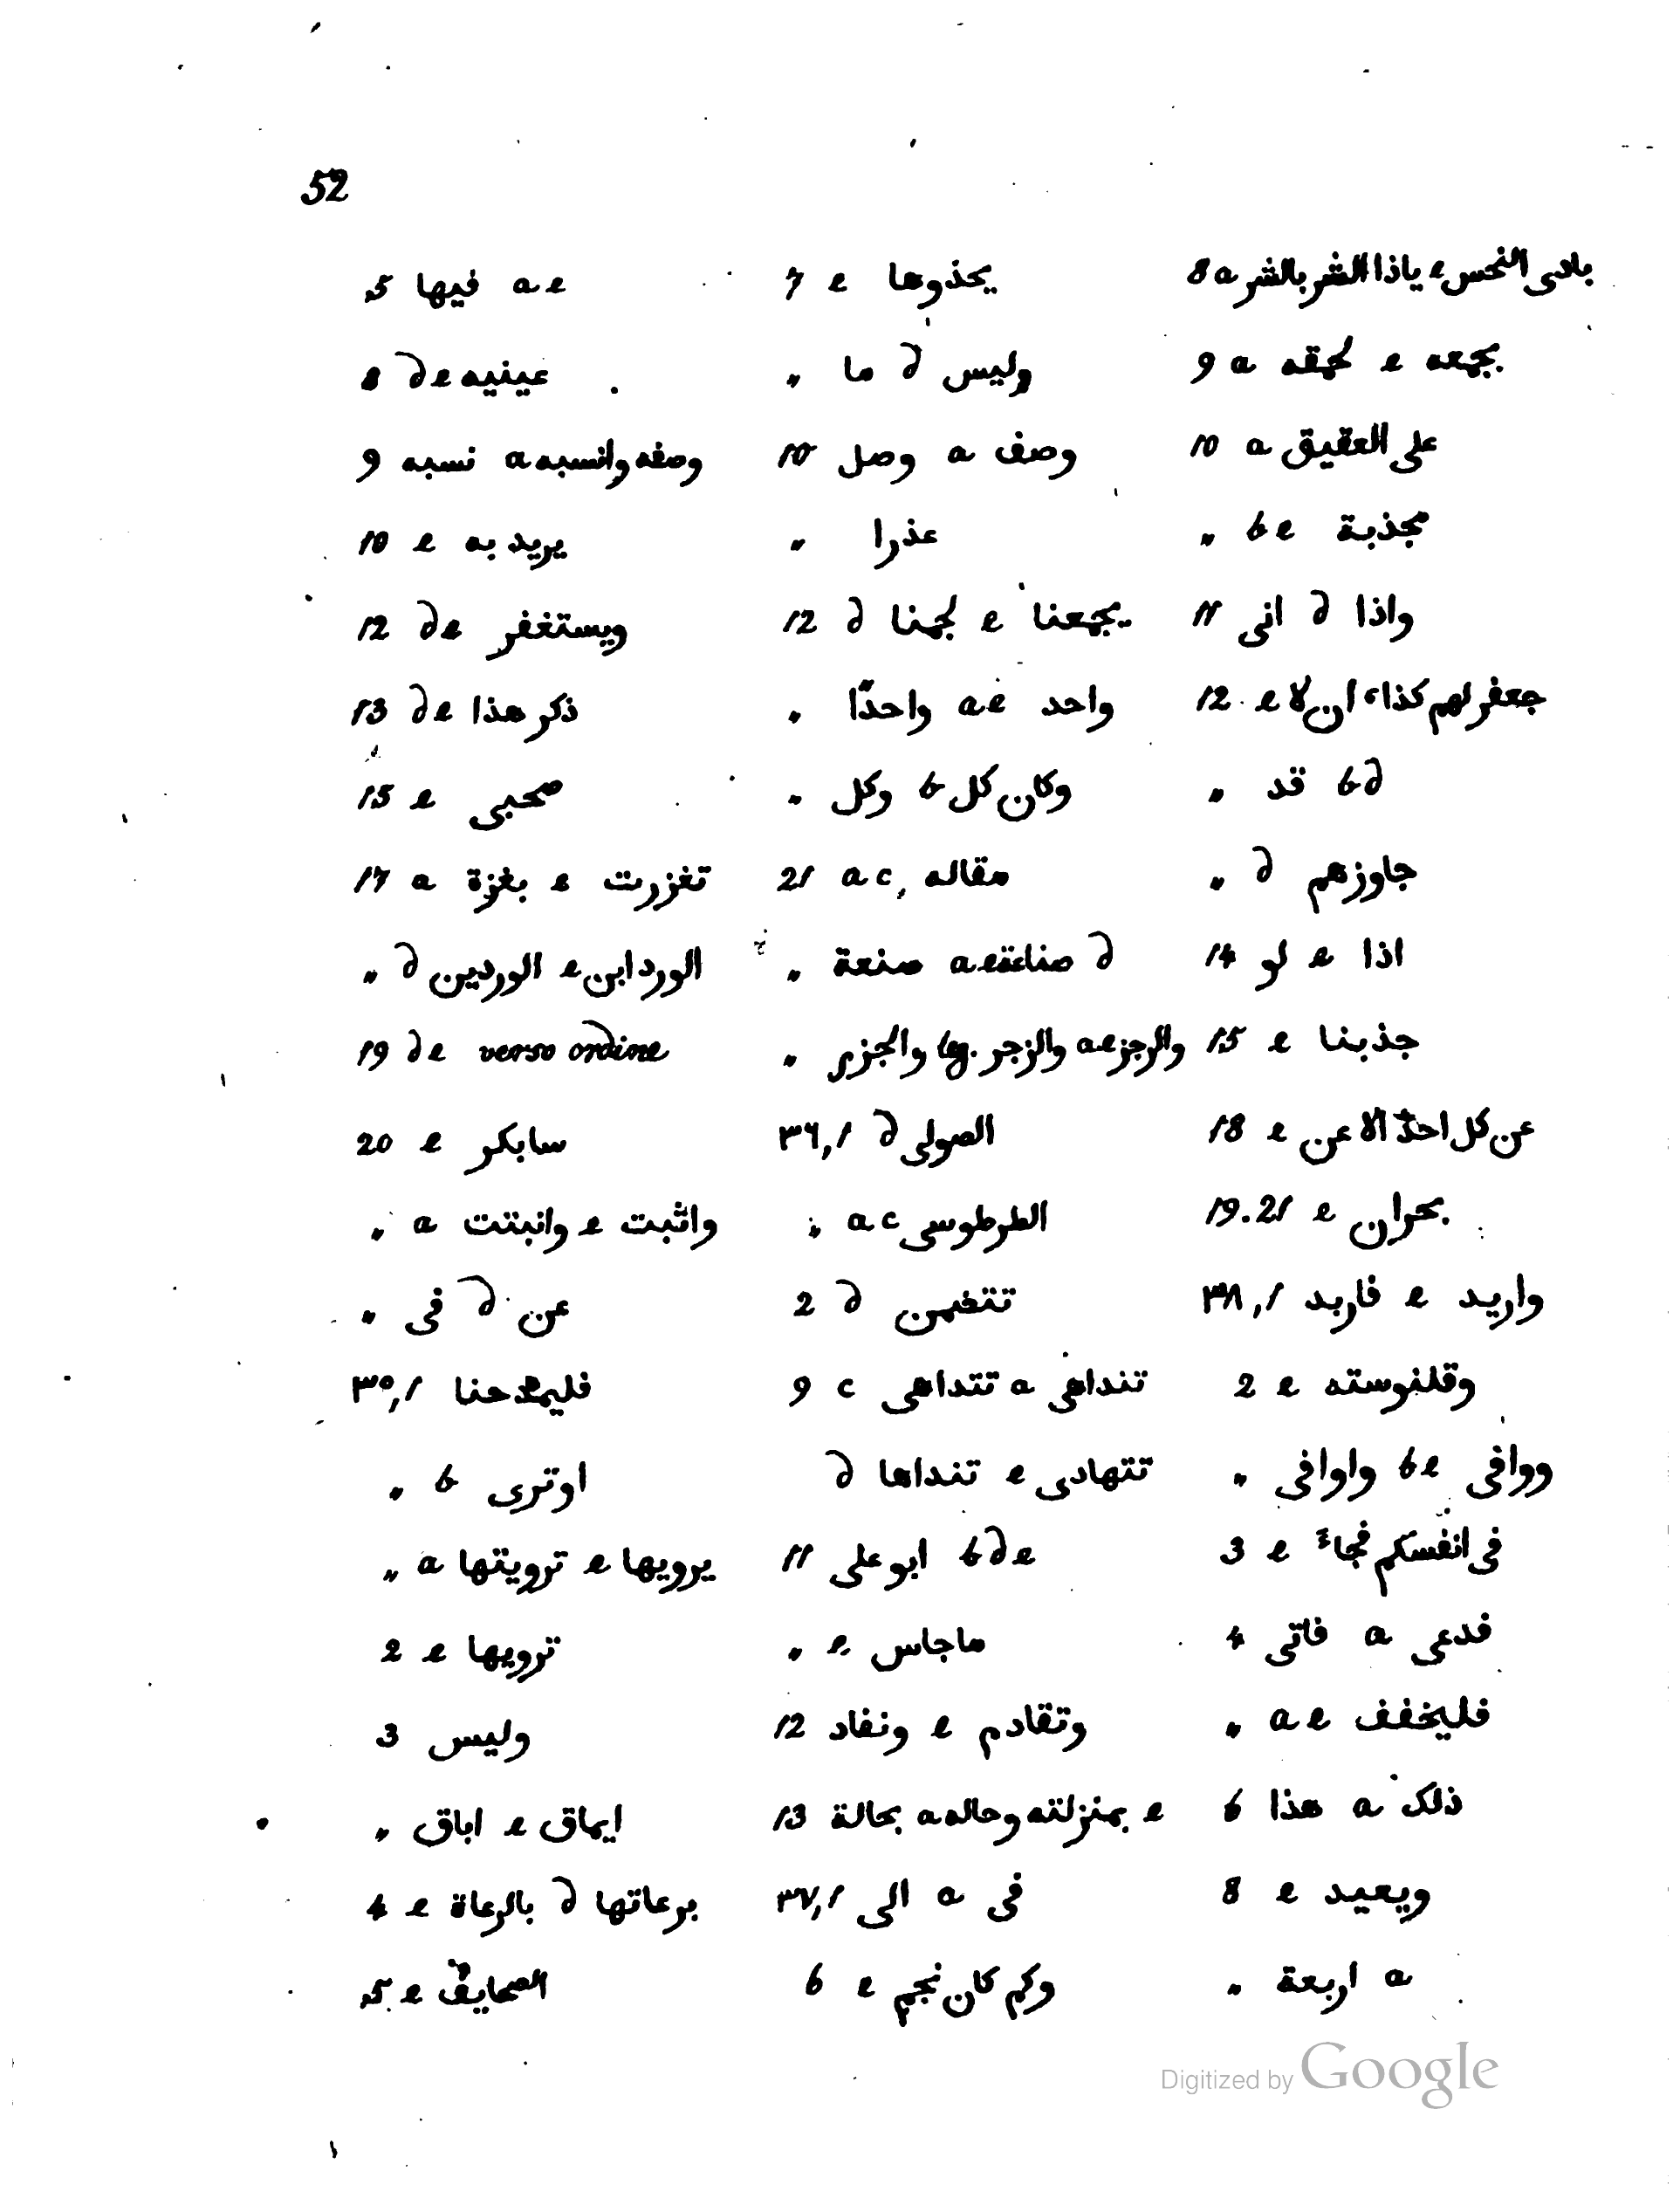 52
بادى النحس e ياذا الشر بالشر a 8
بجمعه e لحمقه a 9
على العقيق a 10
مجذبة be „
واذا d انى 11
جعفر لهم كذا، ان لا e 12
bd قد „
جاوزهم d „
اذا e لو 14
جذبنا e 15
عن كل احد الا عن e 18
بحران e 19.21
واريد e فاربد ٣٨,1
وقلنوسته e 2
ووافى be واوافى „
فى انفسكم فجاء e 3
فدعى a فاتى 4
فليخفف ae „
ذلك a هذا 6
ويعيد e 8
a اربعة „
يحذوها e 7
وليس d ما „
وصف a وصل 10
عذرا „
يجمعنا e لجمنا d 12
واحد ae واحدًا „
وكان كل b وكل „
مقاله ac, 21
d صناعة ae صنعة „
والرجز ae والزجر lg. والجزر „
الصولى d ٣٦,1
الطرطوسى ac „
تتضمن d 2
تنداهى a تتداهى c 9
تتهادى e تنداها d
bde ابو على 11
ماجاس e „
وتقادم e ونفاد 12
e بمنزلته وحاله a بحالة 13
فى a الى ٣٧,1
وكم كان نجم e 6
ae فيها 5
عينيه de 8
وصفه وانسبه a نسبه 9
يريد به e 10
ويستغفر de 12
ذكر هذا de 13
صحبى e 15
تغزرت e بغزة a 17
الورد ابن e الوردين d „
verso ordine de 19
سابكر e 20
واثبت e وانبتت a „
عن d فى „
فليمدحنا ٣٥,1
اوترى b „
يرويها e ترويتها a „
ترويها e 2
وليس 3
ايماق e اباق „
برعاتها d بالرعاة e 4
الصحايف e 5
Digitized by Google